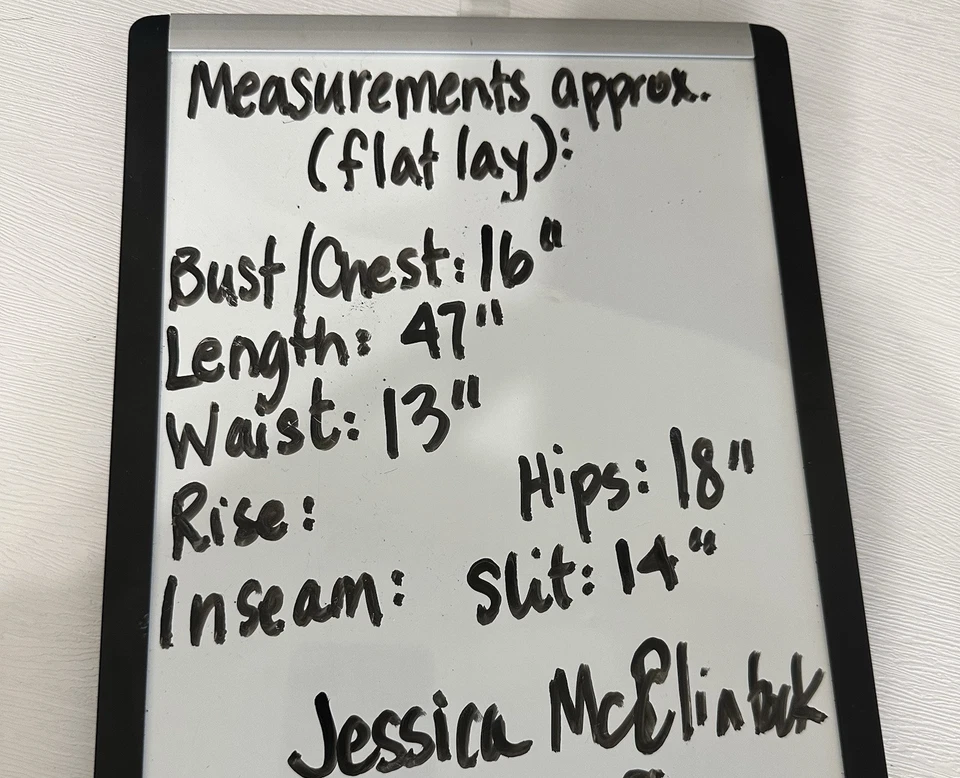 Measurements approx.
(flat lay):
Bust/Chest: 16"
Length: 47"
Waist: 13"
Hips: 18"
Rise:
Inseam: Slit: 14"
Jessica McClintock